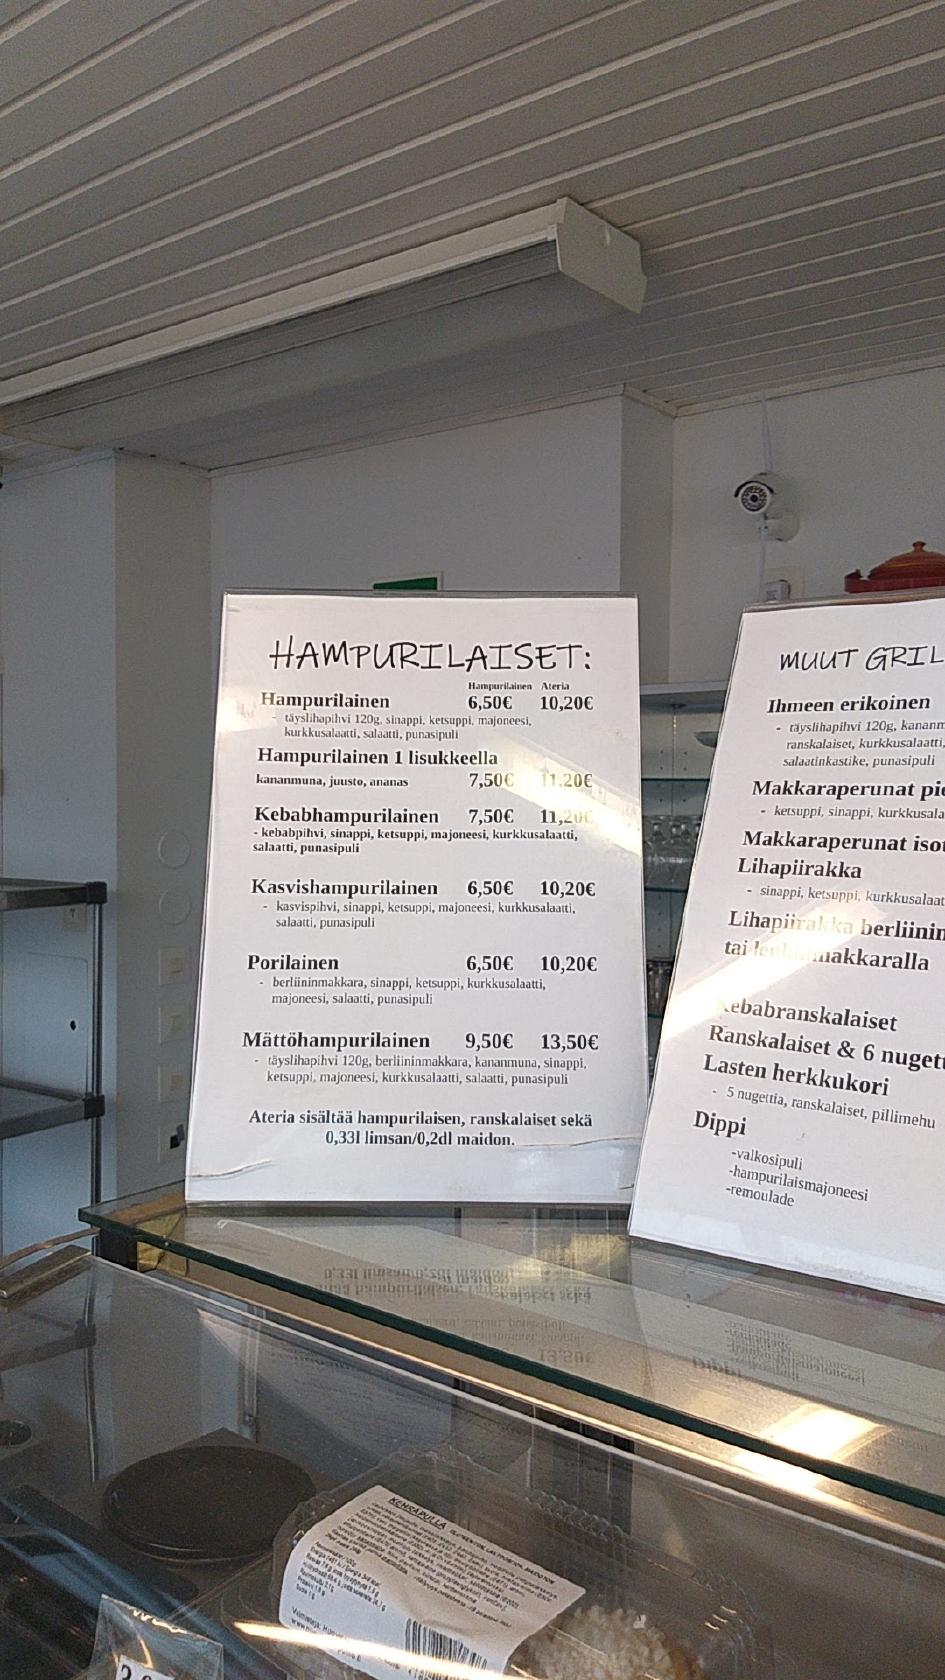 HAMPURILAISET:
Hampurilainen Ateria
Hampurilainen 6,50€ 10,20€
- täyslihapihvi 120g, sinappi, ketsuppi, majoneesi,
kurkkusalaatti, salaatti, punasipuli
Hampurilainen 1 lisukkeella
kananmuna, juusto, ananas 7,50€ 11,20€
Kebabhampurilainen 7,50€ 11,20€
- kebabpihvi, sinappi, ketsuppi, majoneesi, kurkkusalaatti,
salaatti, punasipuli
Kasvishampurilainen 6,50€ 10,20€
- kasvispihvi, sinappi, ketsuppi, majoneesi, kurkkusalaatti,
salaatti, punasipuli
Porilainen 6,50€ 10,20€
- berliininmakkara, sinappi, ketsuppi, kurkkusalaatti,
majoneesi, salaatti, punasipuli
Mättöhampurilainen 9,50€ 13,50€
- täyslihapihvi 120g, berliininmakkara, kananmuna, sinappi,
ketsuppi, majoneesi, kurkkusalaatti, salaatti, punasipuli
Ateria sisältää hampurilaisen, ranskalaiset sekä
0,33l limsan/0,2dl maidon.
MUUT GRIL
Ihmeen erikoinen
- täyslihapihvi 120g, kananm
ranskalaiset, kurkkusalaatti,
salaatinkastike, punasipuli
Makkaraperunat pie
- ketsuppi, sinappi, kurkkusala
Makkaraperunat isot
Lihapiirakka
- sinappi, ketsuppi, kurkkusalaat
Lihapiirakka berliinin
tai lenkkimakkaralla
Kebabranskalaiset
Ranskalaiset & 6 nugett
Lasten herkkukori
- 5 nugettia, ranskalaiset, pillimehu
Dippi
-valkosipuli
-hampurilaismajoneesi
-remoulade
KEHRÄPULLA